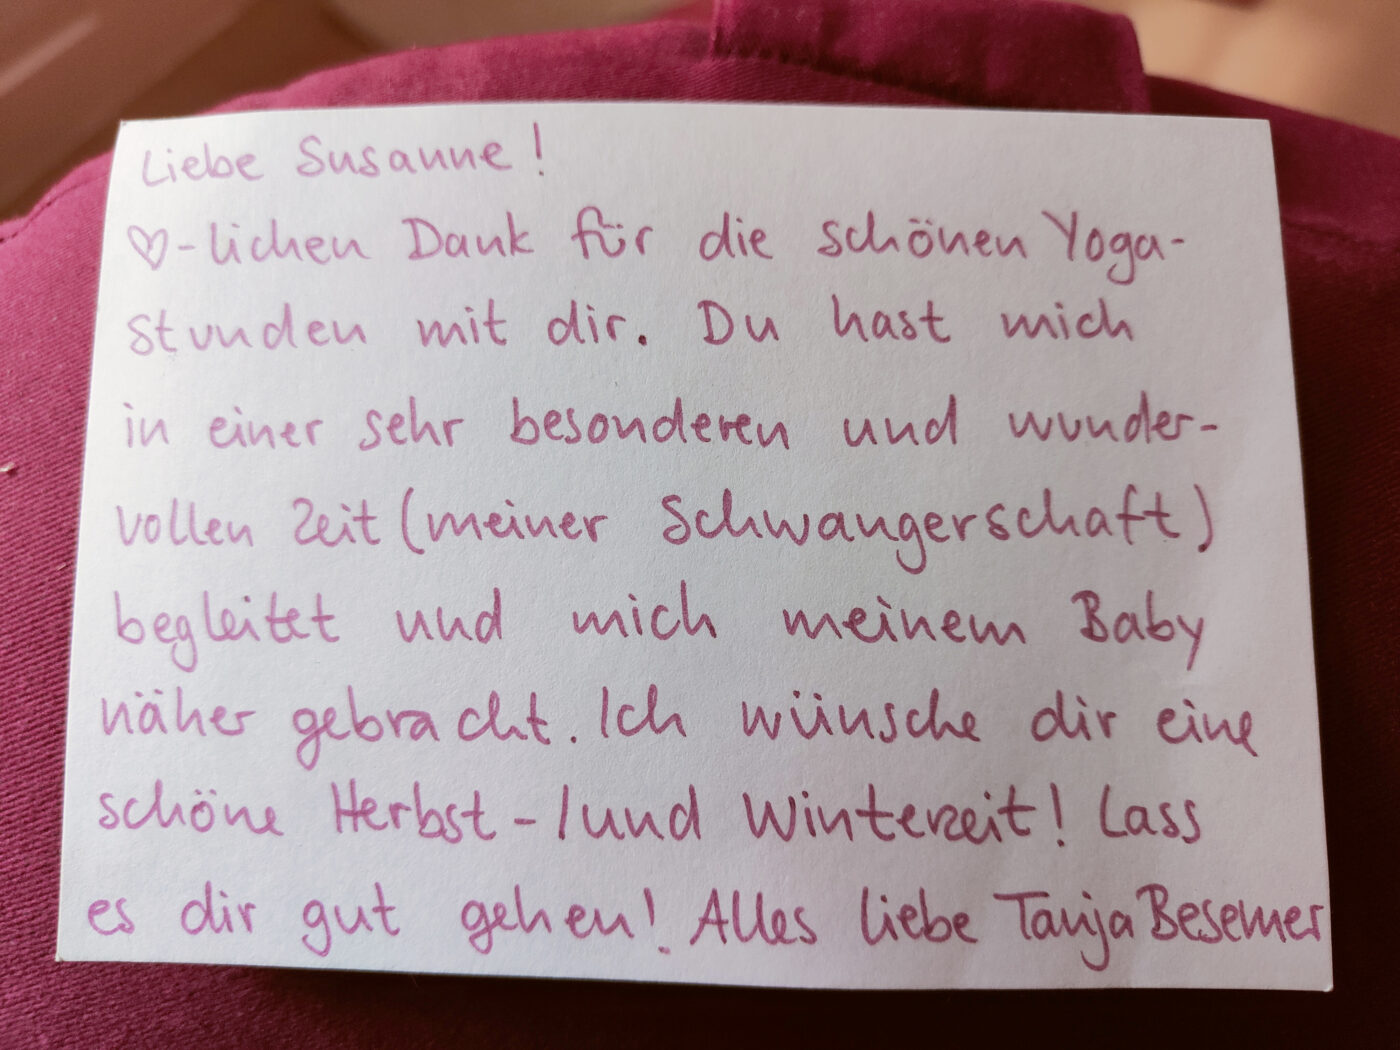 Liebe Susanne!
♡-lichen Dank für die schönen Yoga-
stunden mit dir. Du hast mich
in einer sehr besonderen und wunder-
vollen Zeit (meiner Schwangerschaft)
begleitet und mich meinem Baby
näher gebracht. Ich wünsche dir eine
schöne Herbst-/und Winterzeit! Lass
es dir gut gehen! Alles liebe Tanja Besemer